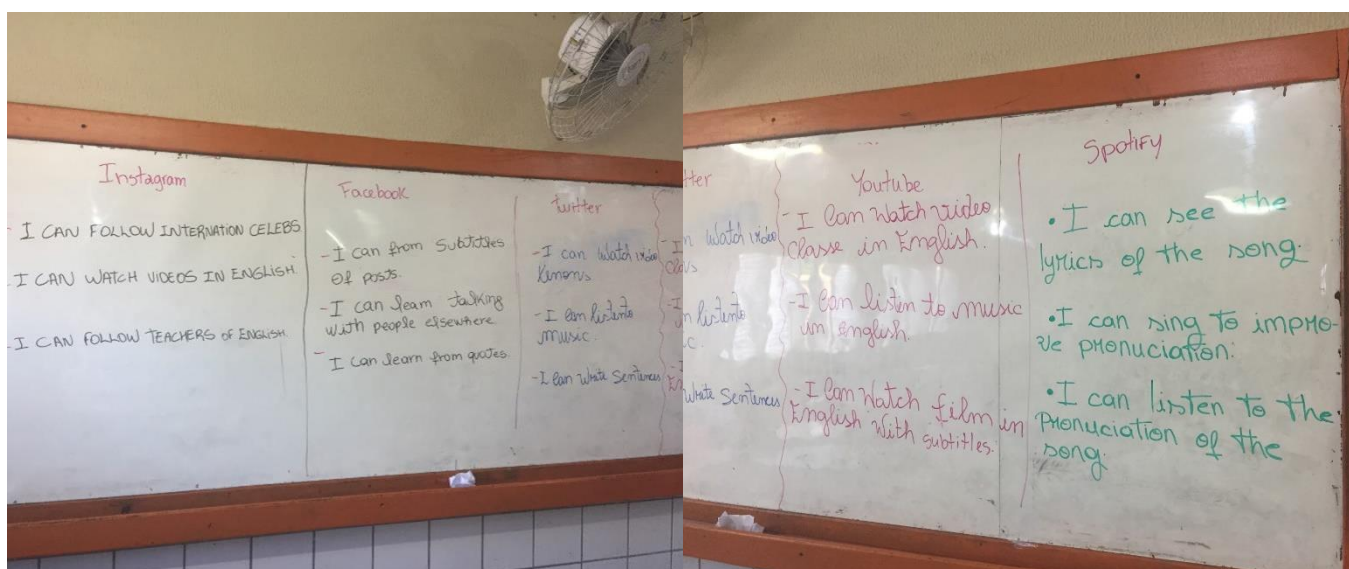 Instagram
- I CAN FOLLOW INTERNATION CELEBS.
- I CAN WATCH VIDEOS IN ENGLISH.
- I CAN FOLLOW TEACHERS OF ENGLISH.
Facebook
- I can from Subtitles
of posts.
- I can learn talking
with people elsewhere
- I can learn from quotes.
twitter
- I can Watch video
- I can listen to
music.
- I can Write Sentences
tter
n Watch video
n listen to
c.
Write Sentences
Youtube
- I can Watch video
Classe in English.
- I can listen to music
in english.
- I can Watch film in
English With subtitles.
Spotify
• I can see the
lyrics of the song.
• I can sing to impro-
ve pronuciation.
• I can listen to the
pronuciation of the
song.